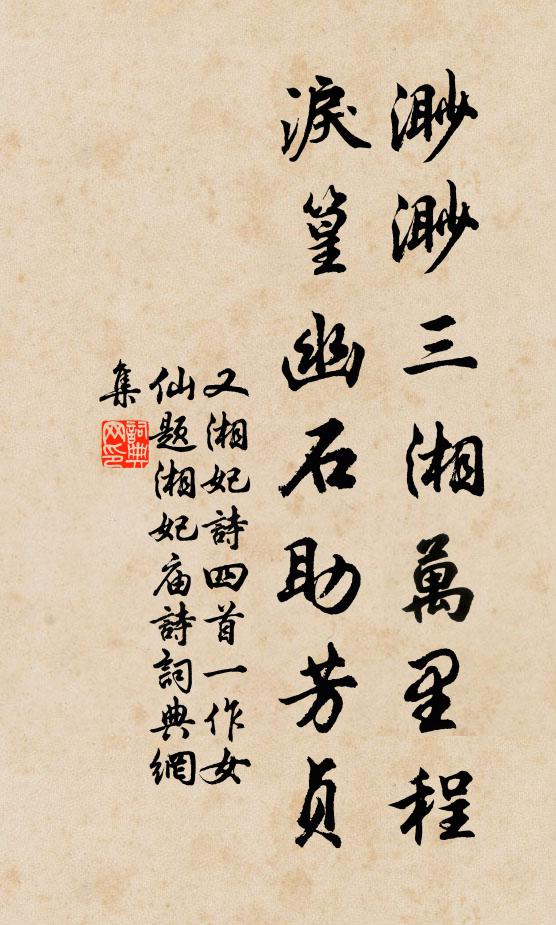 渺渺三湘萬里程
淚篁幽石助芳貞
又湘妃詩四首一作女
仙題湘妃庙詩詞典網
集
詞典
网印